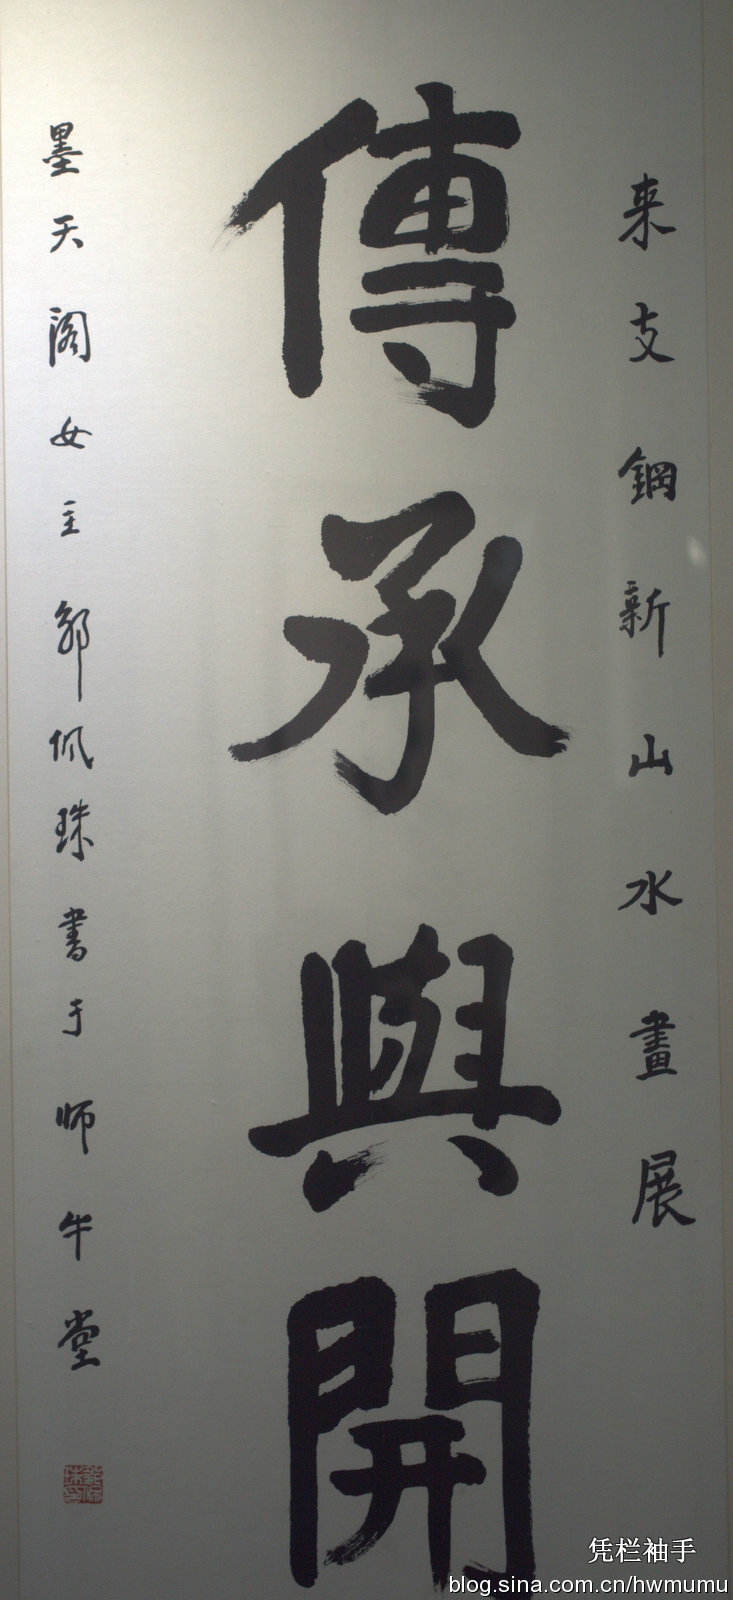 来支鋼新山水畫展
傳承與開
墨天阁女主邹佩珠書于师牛堂
凭栏袖手
blog.sina.com.cn/hwmumu